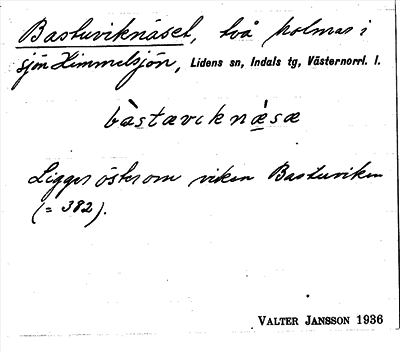 Bastuviknäset, två holmar i
sjön Himmelsjön, Lidens sn, Indals tg, Västernorrl. l.
bàstavıknæ̀sæ
Ligger öster om viken Bastuviken
(= 382).
VALTER JANSSON 1936